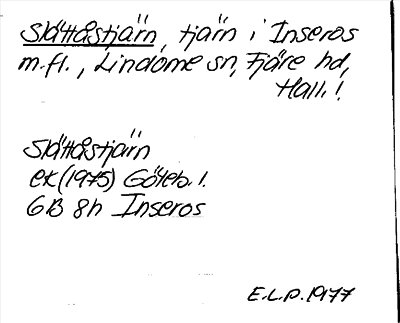 Slättåstjärn, tjärn i Inseros
m.fl., Lindome sn, Fjäre hd,
Hall.!
Slättåstjärn
ek (1975) Göteb. l.
6B 8h Inseros
E.L.P. 1977